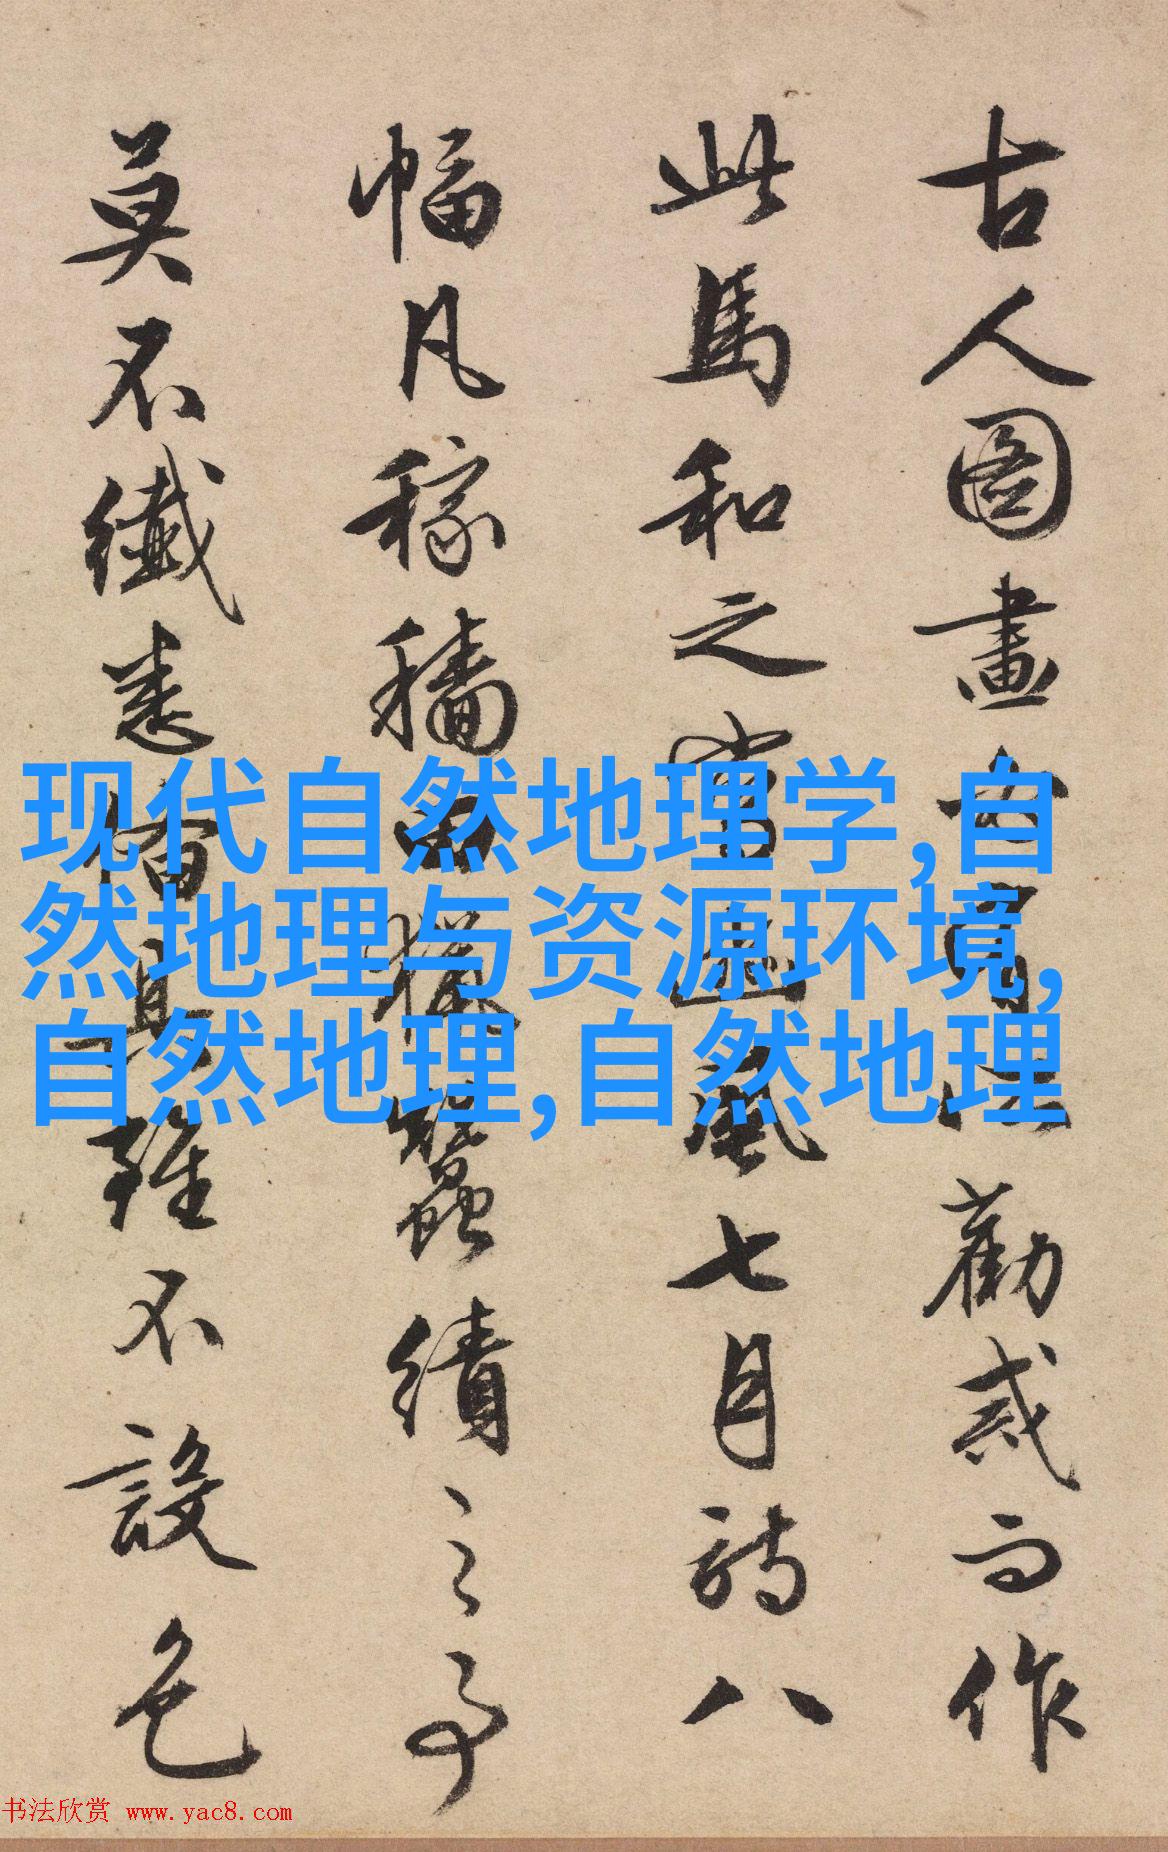 古人圖畫必有所勸戒而作
此馬和之常畫豳風七月詩八
幅凡稼穡田獵蠶績之事
莫不纖悉備具雖不設色
现代自然地理学,自
然地理与资源环境,
自然地理,自然地理
书法欣赏 www.yac8.com